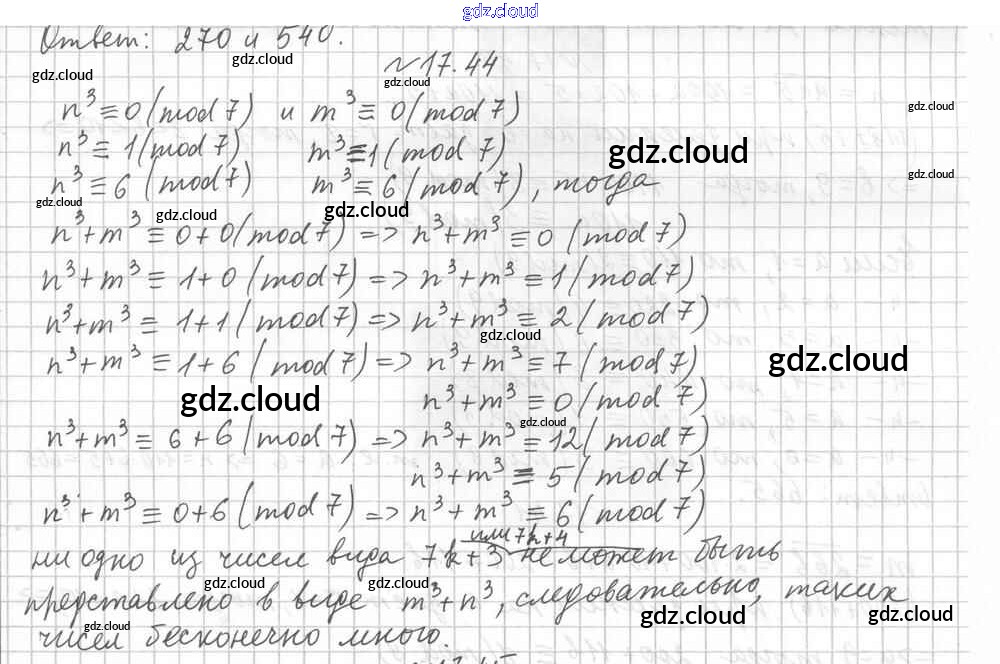 gdz.cloud
Ответ: 270 и 540.
gdz.cloud
gdz.cloud
№17.44
gdz.cloud
n³≡0(mod 7) и m³≡0(mod 7)
gdz.cloud
n³≡1(mod 7) m³≡1(mod 7)
gdz.cloud
n³≡6(mod 7) m³≡6(mod 7), тогда
gdz.cloud
gdz.cloud
gdz.cloud
gdz.cloud
n³+m³≡0+0(mod 7)=>n³+m³≡0(mod 7)
n³+m³≡1+0(mod 7)=>n³+m³≡1(mod 7)
n³+m³≡1+1(mod 7)=>n³+m³≡2(mod 7)
gdz.cloud
n³+m³≡1+6(mod 7)=>n³+m³≡7(mod 7)
gdz.cloud
n³+m³≡0(mod 7)
gdz.cloud
gdz.cloud
n³+m³≡6+6(mod 7)=>n³+m³≡12(mod 7)
n³+m³≡5(mod 7)
n³+m³≡0+6(mod 7)=>n³+m³≡6(mod 7)
или 7k+4
ни одно из чисел вида 7k+3 не может быть
gdz.cloud
gdz.cloud
gdz.cloud
представлено в виде m³+n³, следовательно, таких
gdz.cloud
gdz.cloud
gdz.cloud
чисел бесконечно много.